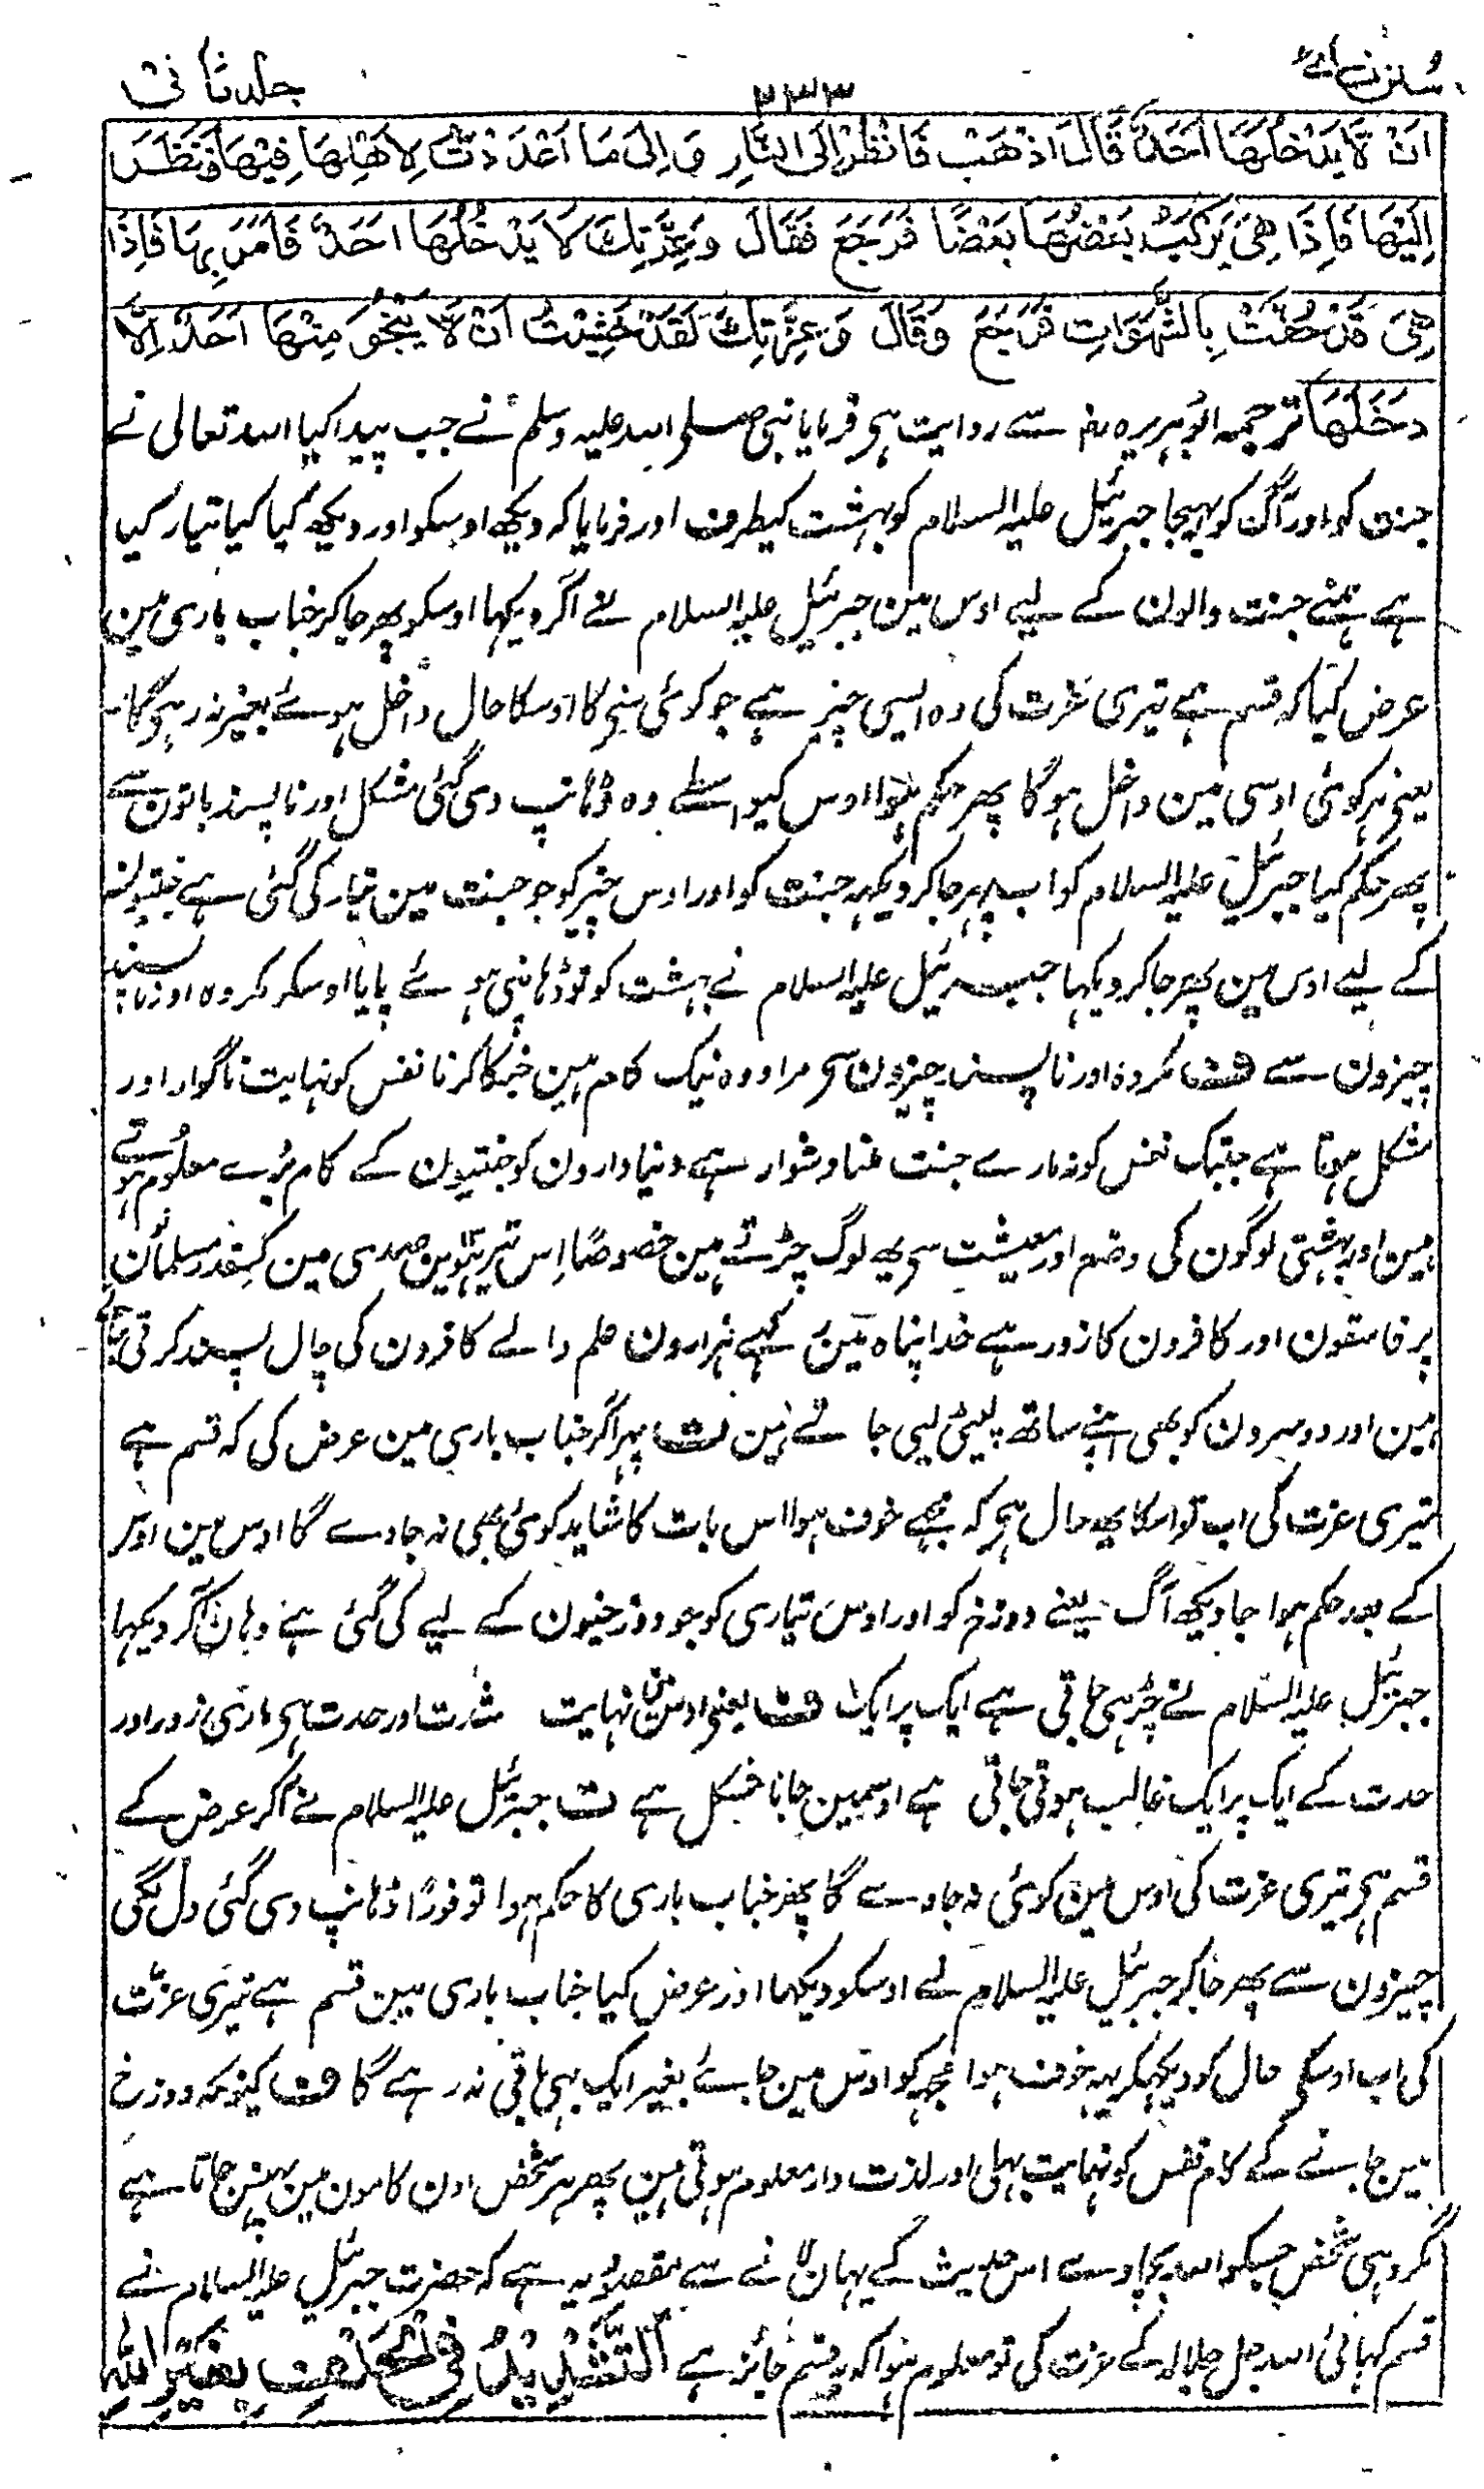 سنن نسائی
۲۳۳
جلد ثانی
اَنْ لَّا يَدْخُلَهَا اَحَدٌ قَالَ اذْهَبْ فَانْظُرْ اِلَى النَّارِ وَ اِلَى مَا اَعْدَدْتُ لِاَهْلِهَا فِيْهَا فَنَظَرَ
اِلَيْهَا فَاِذَا هِيَ يَرْكَبُ بَعْضُهَا بَعْضًا فَرَجَعَ فَقَالَ وَعِزَّتِكَ لَا يَدْخُلُهَا اَحَدٌ فَاَمَرَ بِهَا فَاِذَا
هِيَ قَدْ حُفَّتْ بِالشَّهَوَاتِ فَرَجَعَ وَقَالَ وَعِزَّتِكَ لَقَدْ خَشِيْتُ اَنْ لَّا يَنْجُوَ مِنْهَا اَحَدٌ اِلَّا
دَخَلَهَا ترجمہ ابو ہریرہ رض سے روایت ہی فرمایا نبی صلی اللہ علیہ وسلم نے جب پیدا کیا اللہ تعالی نے
جنت کو اور آگ کو بھیجا جبرئیل علیہ السلام کو بہشت کیطرف اور فرمایا کہ دیکھ اوسکو اور دیکھ کیا کیا تیار کیا
ہے ہمنے جنت والون کے لیے اوس مین جبرئیل علیہ السلام نے آگر دیکہا اوسکو پھر جاکر جناب باری مین
عرض کیا کہ قسم ہے تیری عزت کی وہ ایسی چیز ہے جو کوئی سنیگا اوسکا حال داخل ہوئے بغیر نہ رہیگا
یعنی ہر کوئی اوسی مین داخل ہوگا پھر حکم ہوا اوس کیواسطے وہ ڈہانپ دی گئی مشکل اور ناپسند باتون سے
پھر حکم کیا جبرئیل علیہ السلام کو اب پہر جاکر دیکہہ جنت کو اور اوس چیز کو جو جنت مین تیار کی گئی ہے جنتیون
کے لیے اوس مین پھر جاکر دیکہا جبرئیل علیہ السلام نے بہشت کو تو ڈہانپی ہوئے پایا اوسکو مکروہ اور ناپسند
چیزون سے ف مکروہ اور ناپسند چیزون سی مراد وہ نیک کام ہین جنکا کرنا نفس کو نہایت ناگوار اور
مشکل ہوتا ہے جبتک نفس کو نہ مارے جنت ملنا دشوار ہے دنیا دارون کو جنتیون کے کام بُرے معلوم ہوتے
ہین اور بہشتی لوگون کی وضع اور معیشت سی یہ لوگ چڑتے ہین خصوصًا اِس تیرہوین صدی مین کسقدر مسلمانون
پر فاسقون اور کافرون کا زور ہے خدا پناہ مین رکہے ہزارون علم والے کافرون کی چال پسند کرتی جاتے
ہین اور دوسرون کو بھی اپنے ساتھ لپیٹی لیی جاتے ہین ت پہر آگر جناب باری مین عرض کی کہ قسم ہے
تیری عزت کی اب تو اسکا یہ حال ہی کہ مجھے خوف ہوا اس بات کا شاید کوئی بھی نہ جاوے گا اوس مین اوس
کے بعد حکم ہوا جا دیکھ آگ یعنے دوزخ کو اور اوس تیاری کو جو دوزخیون کے لیے کی گئی ہے وہان آگر دیکہا
جبرئیل علیہ السلام نے چڑہی جاتی ہے ایک پر ایک ف یعنی اوس مین نہایت شدت اور حدت ہی مارے زور اور
حدت کے ایک پر ایک غالب ہوتی جاتی ہے اوسمین جانا مشکل ہے ت جبرئیل علیہ السلام نے آگر عرض کے
قسم ہی تیری عزت کی اوس مین کوئی نہ جاوے گا پھر جناب باری کا حکم ہوا تو فورًا ڈہانپ دی گئی دل لگی
چیزون سے پھر جاکر جبرئیل علیہ السلام نے اوسکو دیکہا اور عرض کیا جناب باری مین قسم ہے تیری عزت
کی اب اوسکی حال کو دیکہکر یہہ خوف ہوا مجہہ کو اوس مین جائے بغیر ایک بہی باقی نہ رہے گا ف کیونکہ دوزخ
مین جانے کے کام نفس کو نہایت بہلی اور لذت دار معلوم ہوتی ہین پھر ہر شخص اون کامون مین پہنس جاتا ہے
مگر وہی شخص جسکو اللہ بچاوے اس حدیث کے یہان لانے سے مقصود یہ ہے کہ حضرت جبرئیل علیہ السلام نے
قسم کہائی اللہ جل جلالہ کے عزت کی تو معلوم ہوا کہ یہ قسم جائز ہے اَلتَّشْدِيْدُ فِی الْحَلْفِ بِغَيْرِ اللهِ